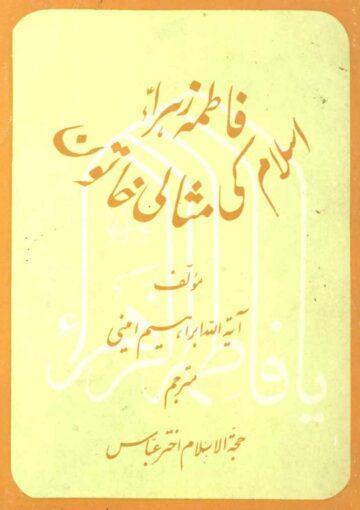 فاطمہ زہراء
اسلام کی مثالی خاتون
مؤلف
آیة اللہ ابراہیم امینی
مترجم
حجة الاسلام اختر عباس
یا فاطمة الزهراء